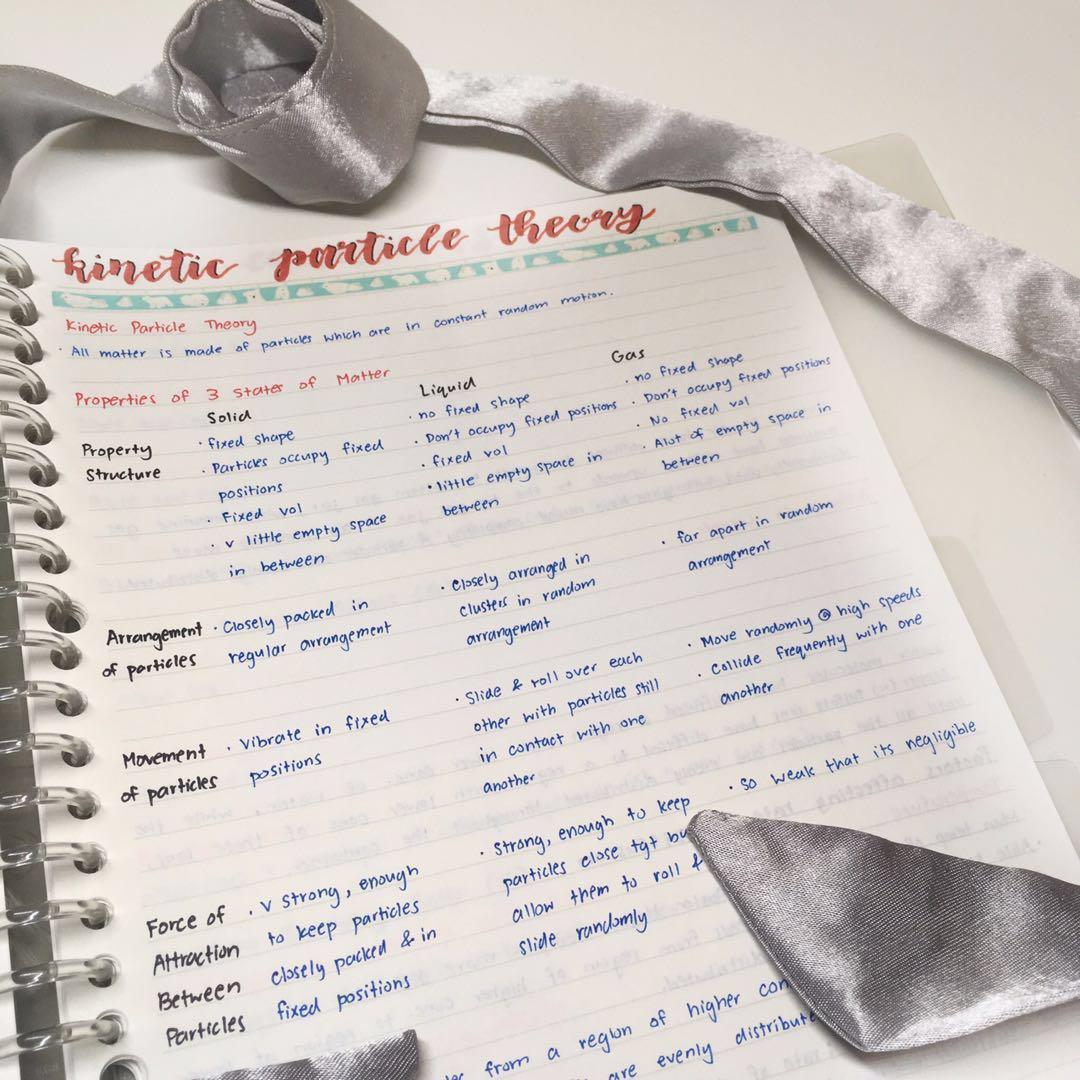 kinetic particle theory
Kinetic Particle Theory
· All matter is made of particles which are in constant random motion.
Properties of 3 States of Matter
Solid
Liquid
Gas
Property
Structure
· fixed shape
· Particles occupy fixed
positions
· Fixed vol
· v little empty space
in between
· no fixed shape
· Don't occupy fixed positions
· fixed vol
· little empty space in
between
· no fixed shape
· Don't occupy fixed positions
· No fixed vol
· Alot of empty space in
between
Arrangement
of particles
· Closely packed in
regular arrangement
· Closely arranged in
clusters in random
arrangement
· far apart in random
arrangement
Movement
of particles
· Vibrate in fixed
positions
· Slide & roll over each
other with particles still
in contact with one
another
· Move randomly @ high speeds
· Collide frequently with one
another
Force of
Attraction
Between
Particles
· v strong, enough
to keep particles
closely packed & in
fixed positions
· strong, enough to keep
particles close tgt
allow them to roll &
slide randomly
· so weak that its negligible
from a region of higher
are evenly